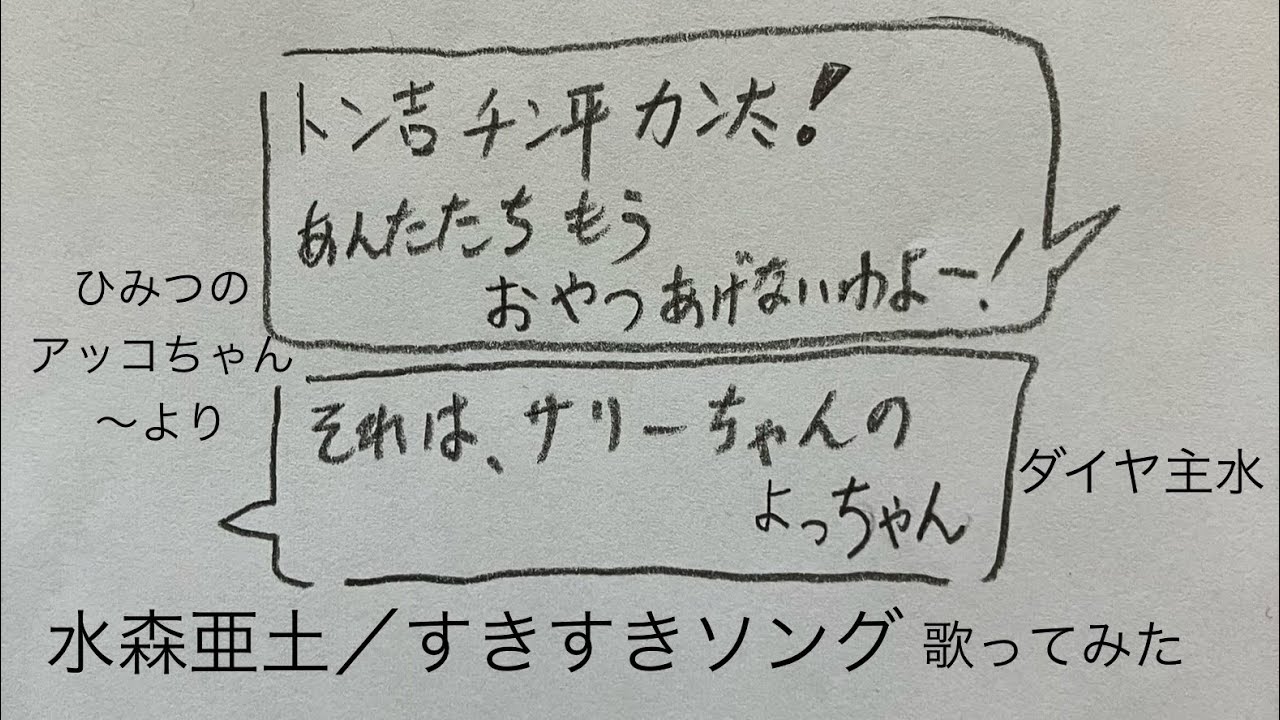 トン吉チン平カン太!
あんたたちもう
おやつあげないわよー!
ひみつの
アッコちゃん
〜より
それは、サリーちゃんの
よっちゃん
ダイヤ主水
水森亜土／すきすきソング 歌ってみた